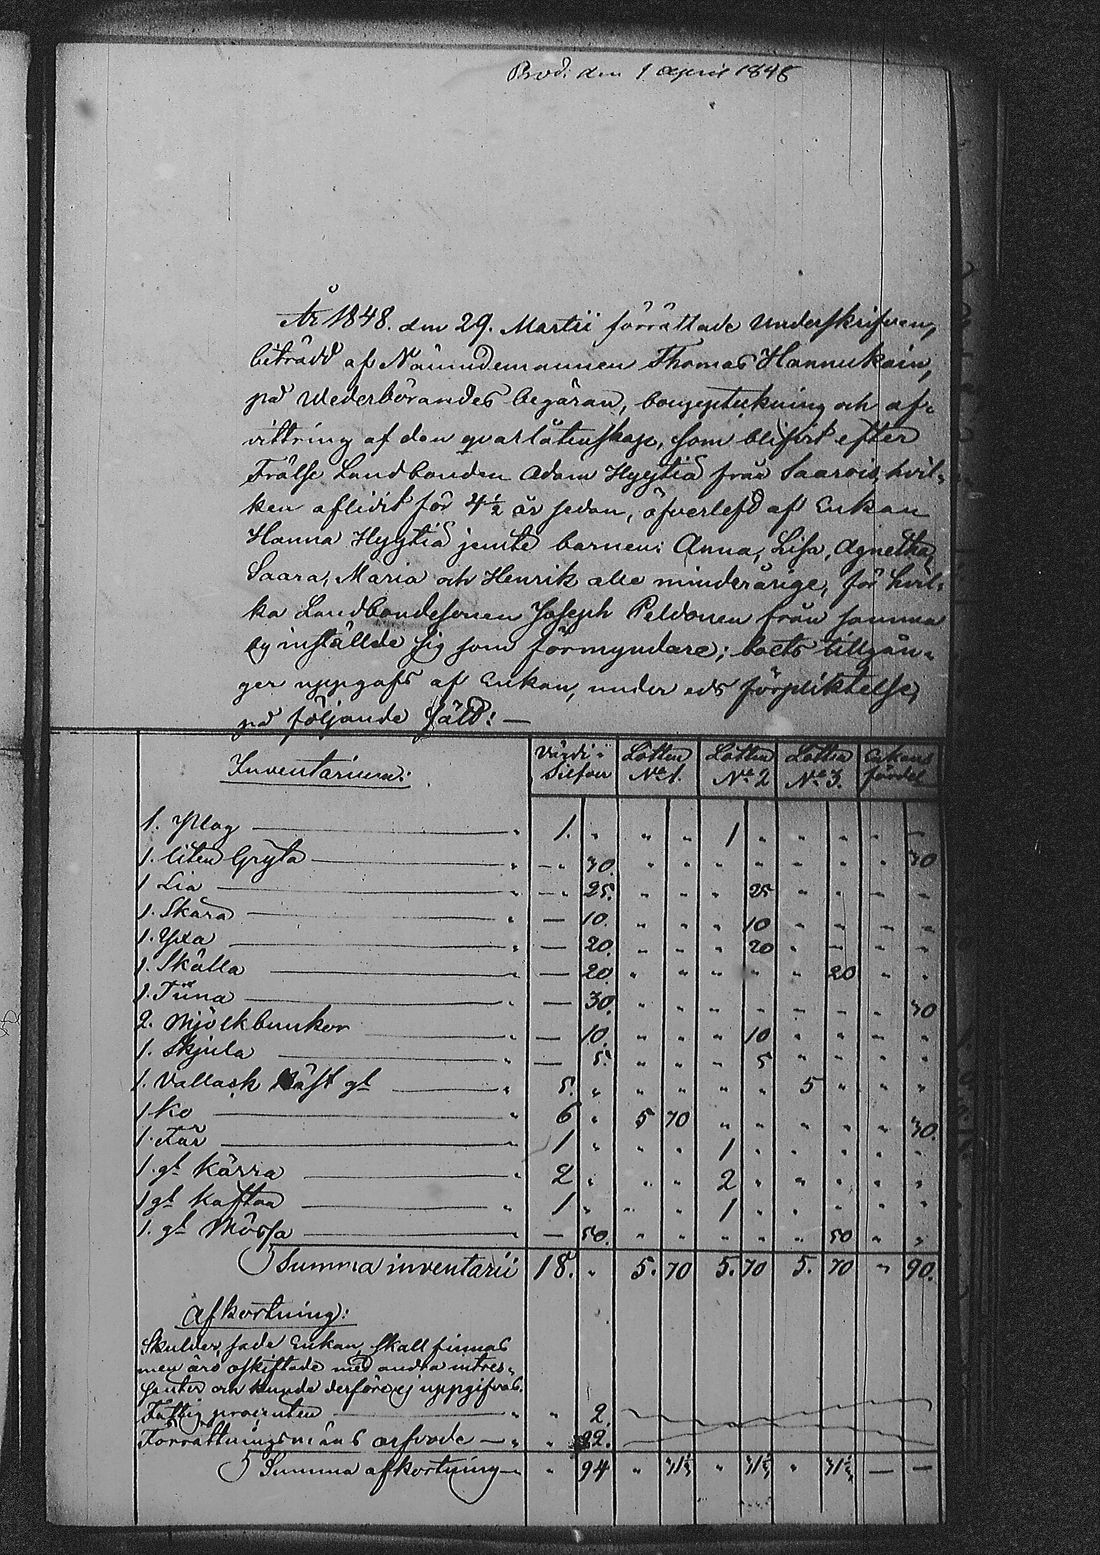 Prod: den 1 April 1848
År 1848. den 29. Martii förrättade Underskrifven,
biträdd af Nämndemannen Thomas Hannukain,
på Wederbörandes begäran, bouppteckning och af-
vittring af den qvarlåtenskap, som blifvit efter
Frälse Landbonden Adam Hyytiä från Saarois, hvil-
ken aflidit för 4½ år sedan, öfverlefd af Enkan
Hanna Hyytiä jemte barnen: Anna, Lisa, Agnetha,
Saara, Maria och Henrik alle minderårige, för hvil-
ka Landbondesonen Joseph Peldonen från samma
by inställde sig som förmyndare; boets tillgån-
gar uppgafs af Enkan, under eds förpliktelse,
på följande sätt: —
Inventarium: Värde i Silfver Lotten No 1. Lotten No 2 Lotten No 3. Enkans fördel
1. Plog — 1. " " " 1 " " " " —
1. liten Gryta — — 30. " " " " " " " 30
1 Lia — — 25. " " " 25 " " " "
1. Skära — — 10. " " " 10 " " " "
1. Yxa — — 20. " " " 20 " — " "
1. Skälla — — 20. " " " " " 20 " "
1. Tina — — 30. " " " " " " " 30
2. Mjölkbunkor — 10. " " " 10 " " " "
1. Skjula — — 5. " " " 5 " " " "
1. Vallack Häst gl — 5. " " " " " 5 " " "
1 Ko — 6 " 5 70 " " " " " 30.
1. Får — 1 " " " 1 " " " " "
1. gl Kärra — 2 " " " 2 " " " " "
1 gl Kaftan — 1 " " " 1 " " " " "
1. gl Mössa — — 50. " " " " " 50 " "
Summa inventarii 18. " 5. 70 5. 70 5. 70 " 90.
Afkortning:
Skulder, sade Enkan, skall finnas
men äro oskiftade med andra intres-
senter och kunde derföre ej uppgifvas.
Fattig procenten — " 2.
Förrättningsmäns arfvode — " 92.
Summa afkortning — " 94 " 31⅓ " 31⅓ " 31⅓ — —